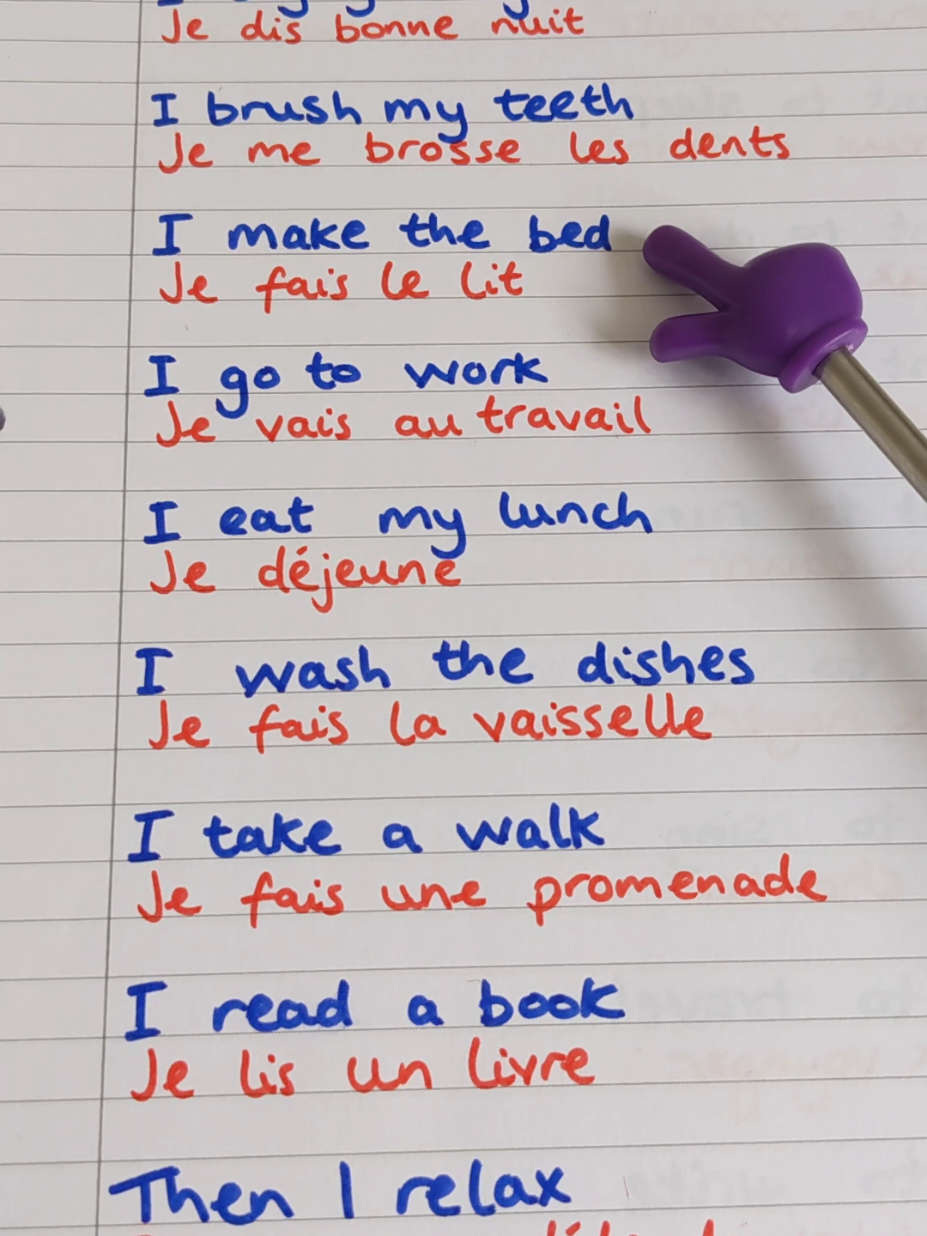 Je dis bonne nuit
I brush my teeth
Je me brosse les dents
I make the bed
Je fais le lit
I go to work
Je vais au travail
I eat my lunch
Je déjeune
I wash the dishes
Je fais la vaisselle
I take a walk
Je fais une promenade
I read a book
Je lis un livre
Then I relax